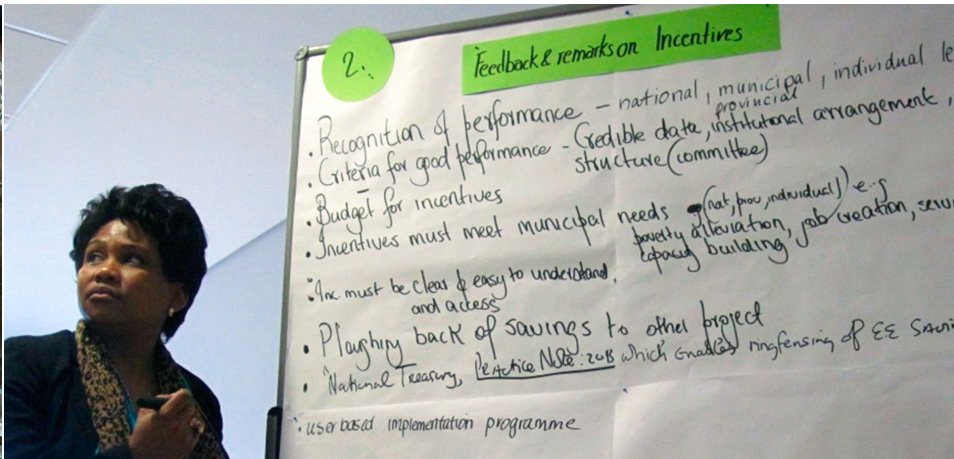 2.
Feedback & remarks on Incentives
• Recognition of performance - national, municipal, individual le
provincial
• Criteria for good performance - Credible data, institutional arrangement,
structure (committee)
• Budget for incentives
• Incentives must meet municipal needs (nat, prov, individual) e.g
poverty alleviation, job creation,
capacity building
• Inc must be clear & easy to understand,
and access
• Ploughing back of savings to other project
• National Treasury, Practice Note: which enables ringfensing of EE
• user based implementation programme